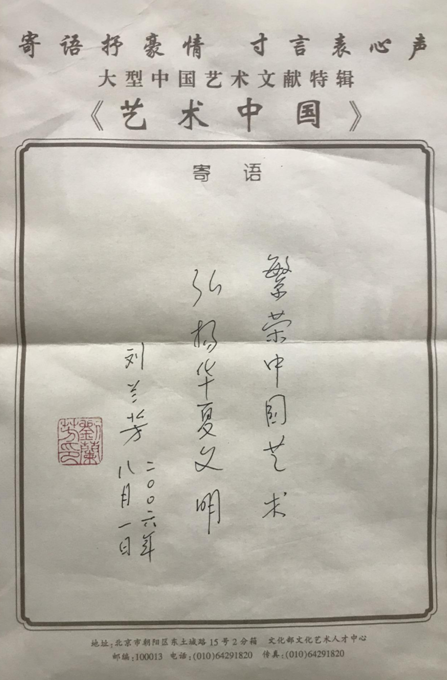 寄语抒豪情 寸言表心声
大型中国艺术文献特辑
《艺术中国》
寄语
繁荣中国艺术
弘扬华夏文明
刘兰芳
二〇〇六年
八月一日
刘兰芳印
地址:北京市朝阳区东土城路15号2分箱 文化部文化艺术人才中心
邮编:100013 电话:(010)64291820 传真:(010)64291820